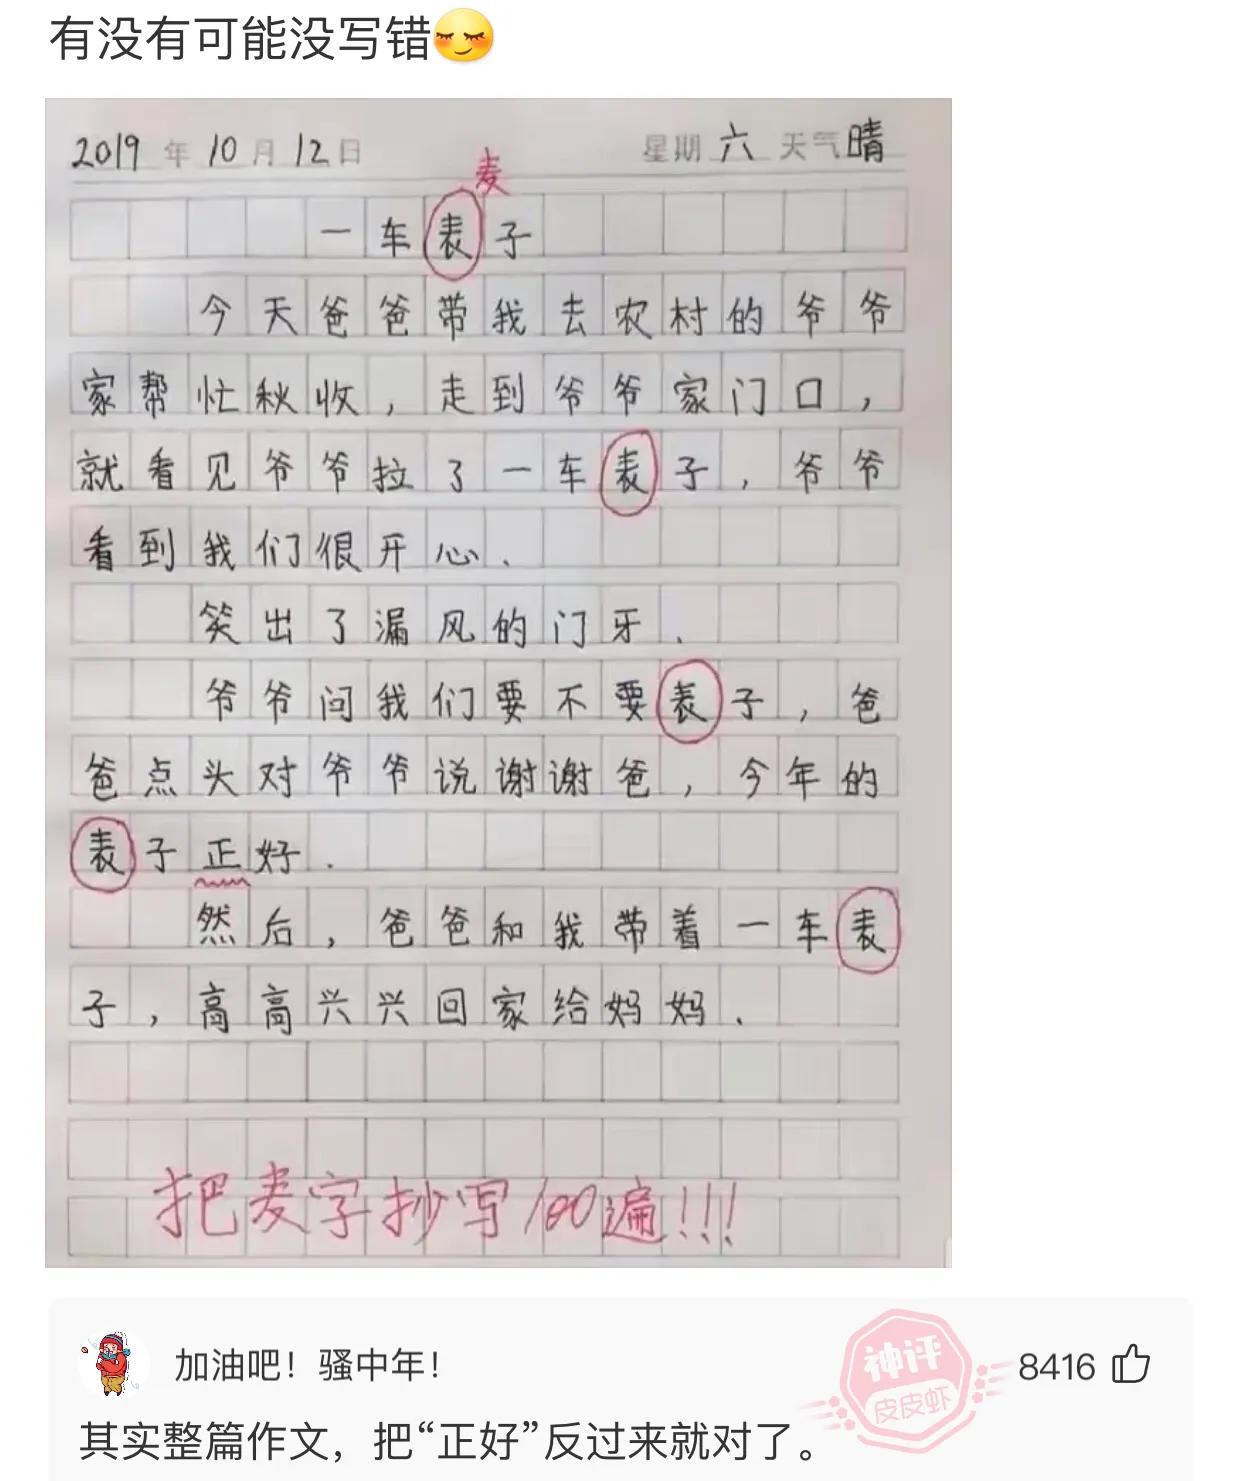 有没有可能没写错
2019年10月12日 星期六 天气晴
麦
一车表子
今天爸爸带我去农村的爷爷
家帮忙秋收，走到爷爷家门口，
就看见爷爷拉了一车表子，爷爷
看到我们很开心．
笑出了漏风的门牙．
爷爷问我们要不要表子，爸
爸点头对爷爷说谢谢爸，今年的
表子正好．
然后，爸爸和我带着一车表
子，高高兴兴回家给妈妈．
把麦字抄写100遍!!!
加油吧！骚中年！
神评
皮皮虾
8416
其实整篇作文，把“正好”反过来就对了。